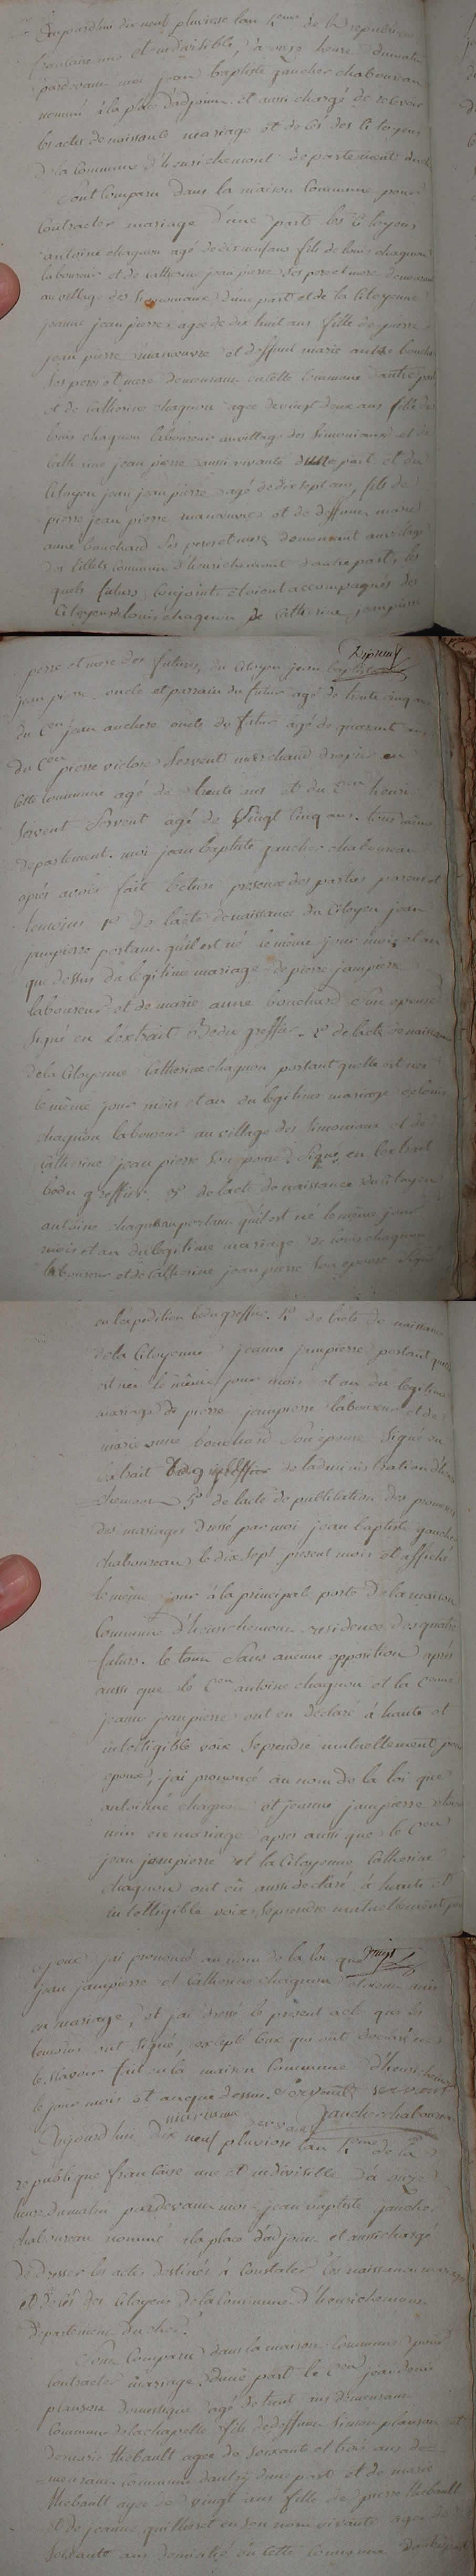 aujourdhui dix neuf pluviose lan 4eme de la republique
francaise une et indivisible, à onze heure du matin
pardevant moi jean baptiste gaucher chaboureau
nommé à la place dadjoint et aussi chargé de recevoir
les actes de naissance mariage et decés des citoyens
de la commune d'henrichemont departement du cher
Sont Comparu dans la maison Commune pour
Contracter mariage d'une part les Citoyens
antoine chagnon agé de dix neuf ans fils de louis chagnon
laboureur et de catherine jean pierre ses pere et mere demeurant
au village des Simoniaux d'une part et de la Citoyenne
jeanne jean pierre agee de dix huit ans fille de pierre
jean pierre manoeuvre et deffunt marie anne bouchard
ses pere et mere demeurant en cette Commune dautre part
et de Catherine chagnon agee de vingt deux ans fille de
louis chagnon laboureur au village des Simoniaux et de
Catherine jean pierre aussi vivante d'une part et du
Citoyen jean jean pierre agé de dix sept ans, fils de
pierre jean pierre manoeuvre et de deffunte marie
anne bouchard ses pere et mere demeurant au village
des commune d'henrichemont d'autre part, les
quels futurs Conjoints etoient accompagnés des
Citoyens louis chagnon de Catherine jeanpierre
pere et mere des futurs, du Citoyen jean baptiste
jean pierre oncle et parrain du futur agé de trente cinq ans
du Cen jean oncle du futur agé de quarant ans
du Cen pierre victore Servent marchand drapier en
cette commune agé de trente ans et du Cen henri
Servent Servent agé de vingt cinq ans. tous même
departement. moi jean baptiste gaucher chaboureau
après avoir fait lecture presence des parties parens et
temoins 1º de lacte de naissance du Citoyen jean
jeanpierre portant quil est né le même jour mois et an
que dessus du legitime mariage de pierre jeanpierre
laboureur et de marie anne bouchard son epouse
Signé en lextrait Bedu greffier. 2º de lacte de naissance
de la Citoyenne Catherine chagnon portant quelle est nee
le même jour mois et an du legitime mariage de louis
chagnon laboureur au village des Simoniaux et de
catherine jean pierre Son epouse. Signé en lextrait
bedu greffier. 3º de lacte de naissance du Citoyen
antoine chagnon portant quil est né le même jour
mois et an du legitime mariage de louis chagnon
laboureur et de Catherine jean pierre Son epouse Signé
en lexpedition bedu greffier. 4º de lacte de naissance
de la Citoyenne jeanne jeanpierre portant quelle
est nee le même jour mois et an du legitime
mariage de pierre jeanpierre laboureur et de
marie anne bouchard Son epouse Signé en
lextrait de ladministration d'henri
chemont 5º de lacte de publication des promesses
des mariages dressé par moi jean baptiste gaucher
chaboureau le dix sept present mois et affiché
le même jour à la principale porte de la maison
Commune d'henrichemont residence des quatre
futurs. le tout Sans aucune opposition après
aussi que le Cen antoine chagnon et la Cenne
jeanne jeanpierre ont eu declaré à haute et
intelligible voix Se prendre mutuellement pour
epoux, jai prononcé au nom de la loi que
antoine chagnon et jeanne jeanpierre etoient
unis en mariage après aussi que le Cen
jean jeanpierre et la Citoyenne Catherine
chagnon ont eu aussi declaré à haute et
intelligible voix Se prendre mutuellement pour
epoux jai prononcé au nom de la loi que vingt
jean jeanpierre et Catherine chagnon etoient unis
en mariage, et jai dressé le present acte que les
temoins ont Signé, excepté ceux qui ont declaré ne
le Savoir fait en la maison Commune d'henrichemont
le jour mois et an que dessus. Servent Servent
gaucher chaboureau
aujourdhui dix neuf pluviose lan 4eme de la
republique francaise une et indivisible à onze
heure du matin pardevant moi jean baptiste gaucher
chaboureau nommé à la place dadjoint et aussi chargé
de dresser les actes destinés à Constater les naissances mariages
et decés des Citoyens de la Commune d'henrichemont
departement du cher.
Sont Comparu dans la maison Commune pour
Contracter mariage d'une part le Cen jean
planson domestique agé de trent ans demeurant
Commune de lachapelle fils de deffunt Simon planson et
de marie thebault agee de Soixante et trois ans de
meurant commune dautry d'une part et de marie
thebault agee de vingt ans fille de pierre thebault
et de jeanne guilleret en son nom vivante agee de
Soixante ans domicilié en cette Commune dautre part